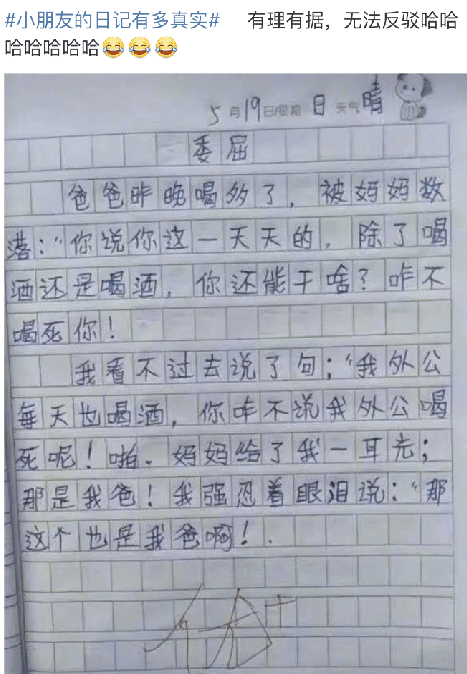 #小朋友的日记有多真实# 有理有据，无法反驳哈哈
哈哈哈哈哈😂😂😂
5月19日星期日天气晴
委屈
爸爸昨晚喝多了，被妈妈数
落："你说你这一天天的，除了喝
酒还是喝酒，你还能干啥？咋不
喝死你！
我看不过去说了句；"我外公
每天也喝酒，你咋不说我外公喝
死呢！啪．妈妈给了我一耳光；
那是我爸！我强忍着眼泪说："那
这个也是我爸啊！．